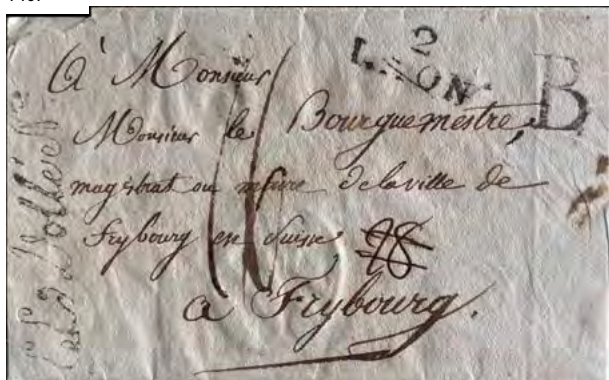 2
LAON
B
à Monsieur
Monsieur le Bourguemestre,
magistrat ou mère de la ville de
Frybourg en Suisse
28
a Frybourg.